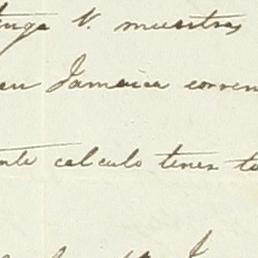 tenga V. muestras
en Jamaica corren
nte calculo tener to